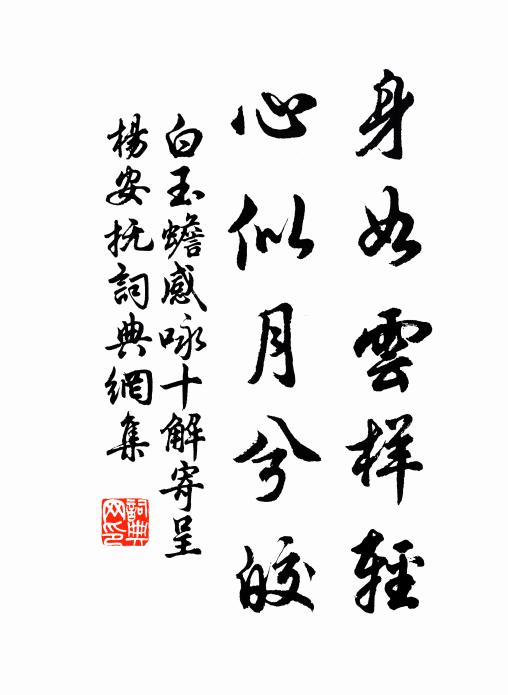 身如雲樣輕
心似月兮皎
白玉蟾感咏十解寄呈
楊安抚詞典網集
詞典网印